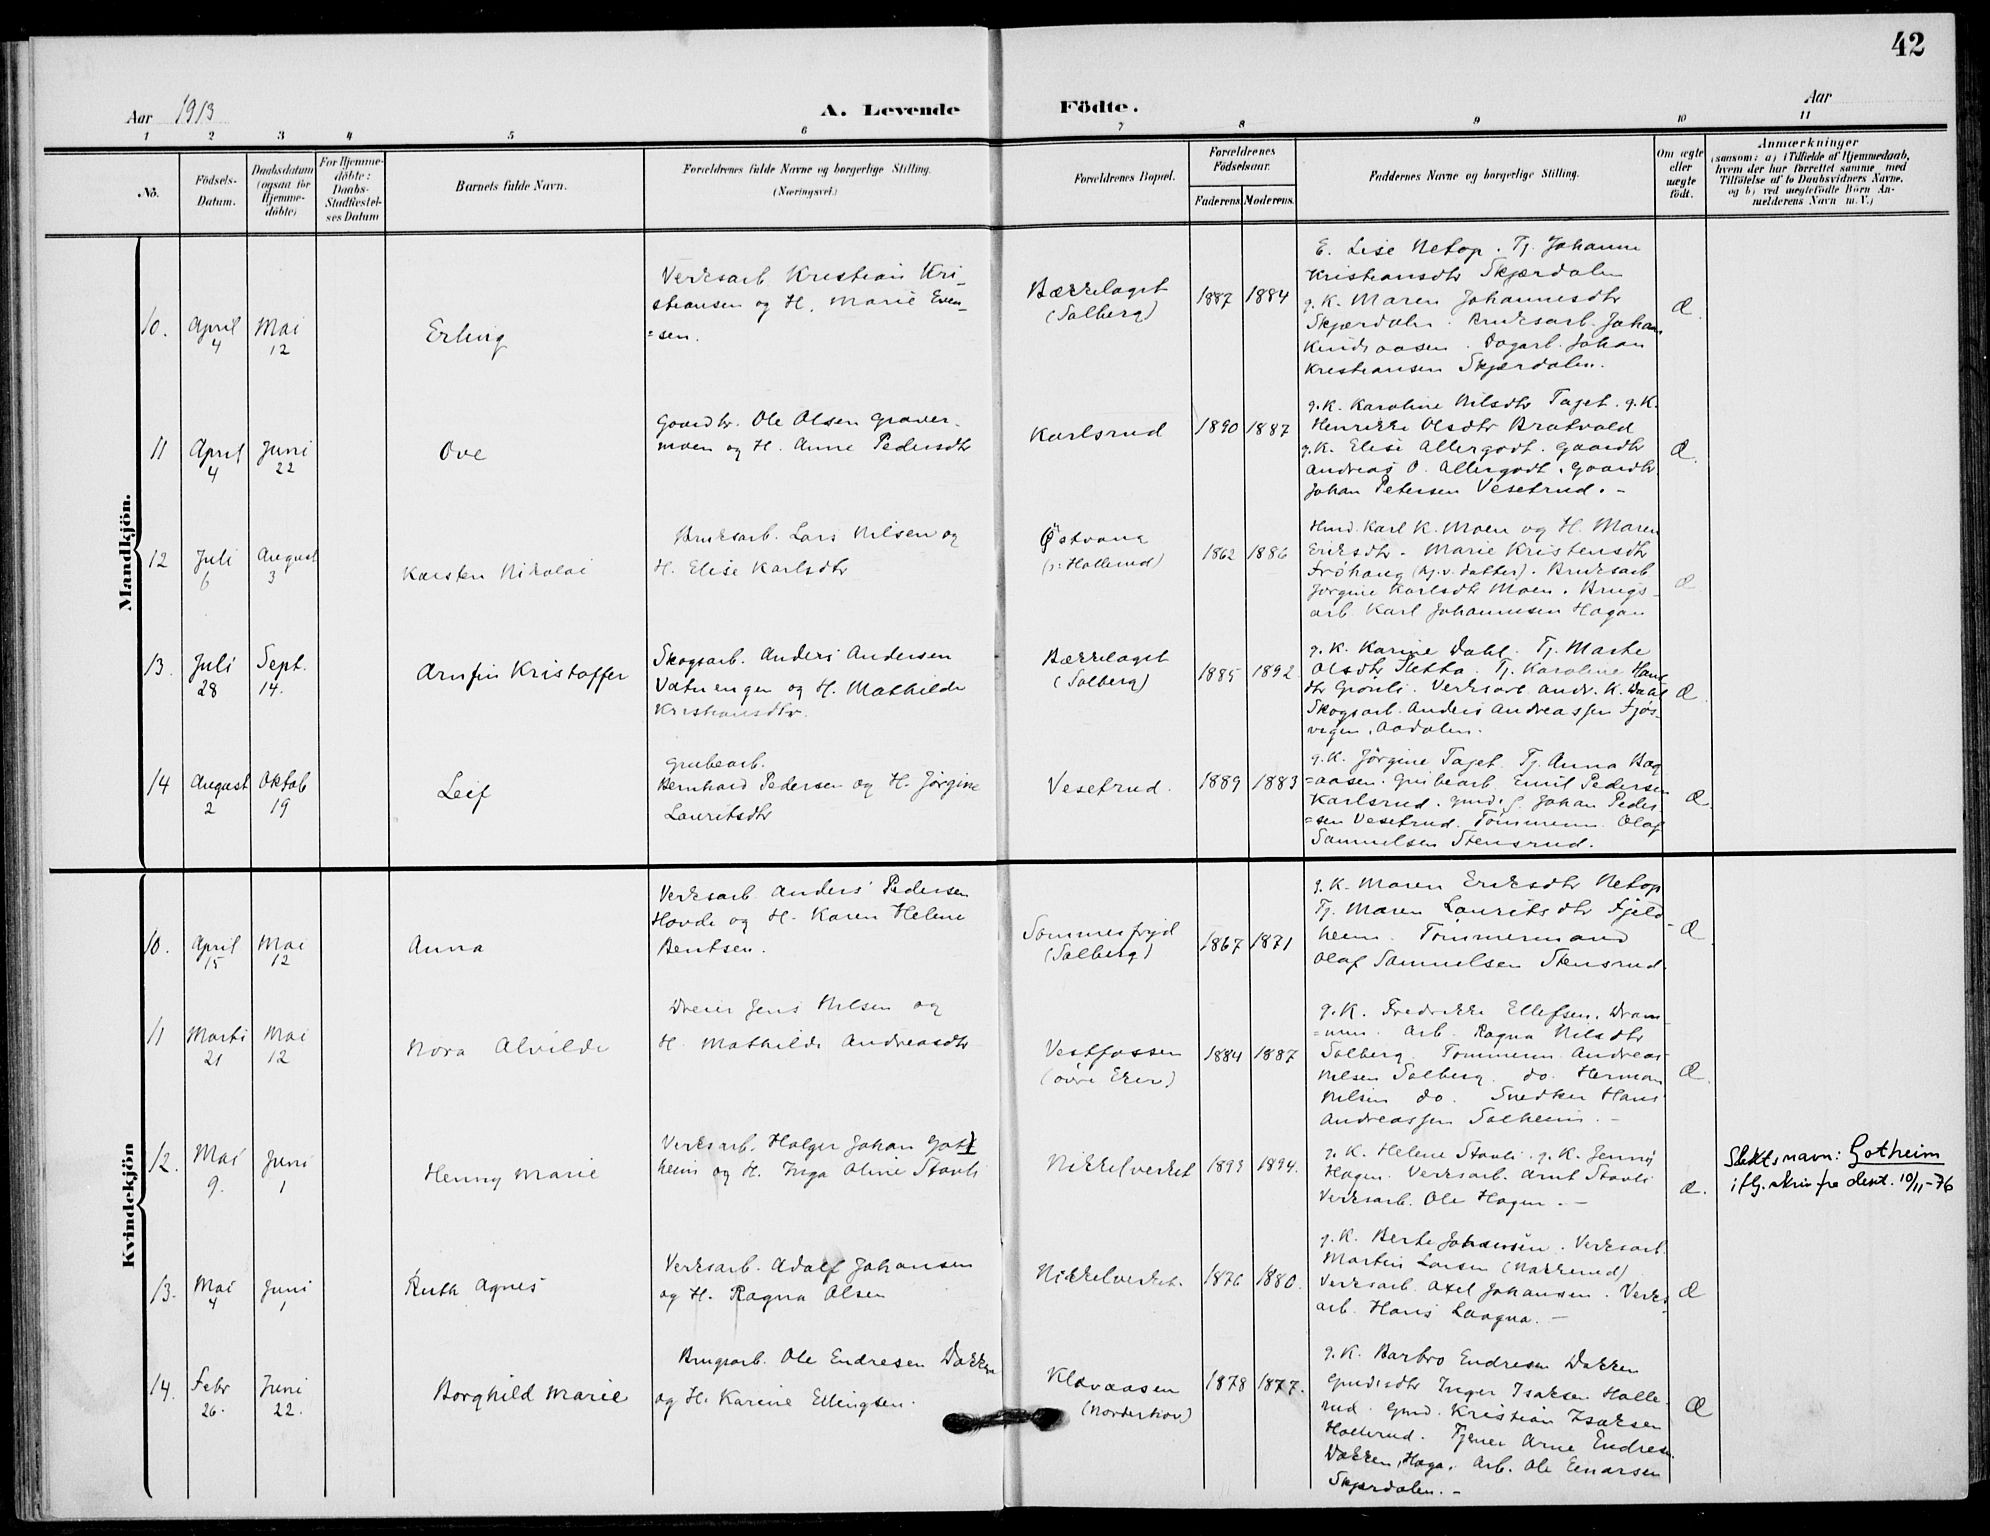 42
Aar 1913
A. Levende
Födte.
Aar
1 2 3 4 5 6 7 8 9 10 11
No.
Födsels-
Datum.
Daabsdatum
(ogsaa for
Hjemme-
döbte)
For Hjemme-
döbte:
Daabs-
Stadfæstel-
ses Datum
Barnets fulde Navn.
Forældrenes fulde Navne og borgerlige Stilling.
(Næringsvei.)
Forældrenes Bopæl.
Forældrenes
Födselsaar.
Faderens Moderens.
Faddernes Navne og borgerlige Stilling.
Om ægte
eller
uægte
födt.
Anmærkninger
(saasom: a) i Tilfælde af Hjemmedaab,
hvem der har forrettet samme, med
Tilföielse af to Daabsvidners Navne,
og b) ved uægtefödte Börn An-
melderens Navn m. V.)
Mandkjön.
10.
April
4
Mai
12
Erling
Verksarb. Kristian Kri-
stiansen og H. Marie Even-
=sen.
Bækkelaget
(Solberg)
1887 1884
E. Lise Netop. Tj. Johanne
Kristiansdtr Skjærdalen
g. K. Maren Johannesdtr
Skjærdalen. Bruksarb. Johan
Knudsaasen. Dagarb. Johan
Kristiansen Skjærdalen.
Æ.
11
April
4
Juni
22
Ove
Gaardbr. Ole Olsen Graver-
moen og H. Anne Pedersdtr
Karlsrud
1890 1887
g. K. Karoline Nilsdtr Taget. g. K.
Henrikke Olsdtr Bratvold
g. K. Elise Allergodt. Gaardbr
Andreas O. Allergodt. Gaardbr
Johan Petersen Vesetrud. -
Æ.
12
Juli
6
August
3
Karsten Nikolai
Bruksarb. Lars Nilsen og
H. Elise Karlsdtr
Østvang
(v: Hallerud)
1862 1886
Husd. Karl K. Moen og H. Maren
Eriksdtr. Marie Kristensdtr
Frøhaug (hj.v. datter). Bruksarb
Jørgine Karlsdtr Moen. Brugs-
arb. Karl Johannesen Hagan
Æ
13.
Juli
28
Sept.
14.
Arnfin Kristoffer
Skogsarb. Anders Andersen
Vatnengen og H. Mathilde
Kristiansdtr.
Bækkelaget
(Solberg)
1885 1892
g. K. Karine Dahl. Tj. Marte
Olsdtr Sletta. Tj. Karoline Hans
dtr Grønli. Verksarb. Andr. K. Dahl
Skogsarb. Anders Andreassen Fjøs-
vegen, Aadalen.
Æ.
14
August
2
Oktob
19
Leif
Grubearb.
Bernhard Pedersen og H. Jørgine
Lauritsdtr
Vesetrud.
1889 1883
g. K. Jørgine Taget. Tj. Anna Hag
=aasen. Grubearb. Emil Pedersen
Karlsrud. Johan Peder
=sen Vesetrud. Tømmerm. Olaf
Samuelsen Stensrud.
Æ.
Kvindekjön
10.
April
15
Mai
12
Anna
Verksarb. Anders Pedersen
Hovde og H. Karen Helene
Bentsen.
Sommerfryd
(Solberg)
1867 1871
g. K. Maren Eriksdtr Netop
Tj. Maren Lauritsdtr Fjeld-
heim. Tømmermand
Olaf Samuelsen Stensrud.
Æ.
11
Marts
21
Mai
12
Nora Alvilde
Dreier Jens Nilsen og
H. Mathilde Andreasdtr
Vestfossen
(øvre Eker)
1884 1887
g. K. Fredrikke Ellefsen, Dram-
=men. Arb. Ragna Nilsdtr
Solberg. Tømmerm. Andreas
Nilsen Solberg. do. Herman
Nilsen do. Snedker Hans
Andreassen Solheim. -
Æ.
12.
Mai
9.
Juni
1
Henny Marie
Verksarb. Holger Johan Got
heim og H. Inga Oline Stavli
Nikkelverket
1893 1894.
g. K. Helene Stavli. g. K. Jenny
Hagen. Verksarb. Arnt Stavli
Verksarb. Ole Hagen. -
Æ.
Slektsnavn: Gotheim
iflg. skriv fra dept. 10/11-76
13.
Mai
4
Juni
1
Ruth Agnes
Verksarb. Adolf Johansen
og H. Ragna Olsen
Nikkelverket.
1876 1880.
g. K. Berte Johansen. Verksarb.
Martin Larsen (Nakkerud)
Verksarb. Axel Johansen. Verks-
arb. Hans Laagna. -
Æ
14.
Febr
26.
Juni
22.
Borghild Marie
Brugsarb. Ole Endresen Dokken
og H. Karine Ellingsen.
Klovaasen
(Norderhov)
1878 1877.
g. K. Barbro Endresen Dokken
Gmdsdtr Inger Isaksen Halle-
rud. Gmd. Kristian Isaksen
Hallerud. Tjener Arne Endresen
Dokken, Haga. Arb. Ole Einarsen
Skjærdalen. -
Æ